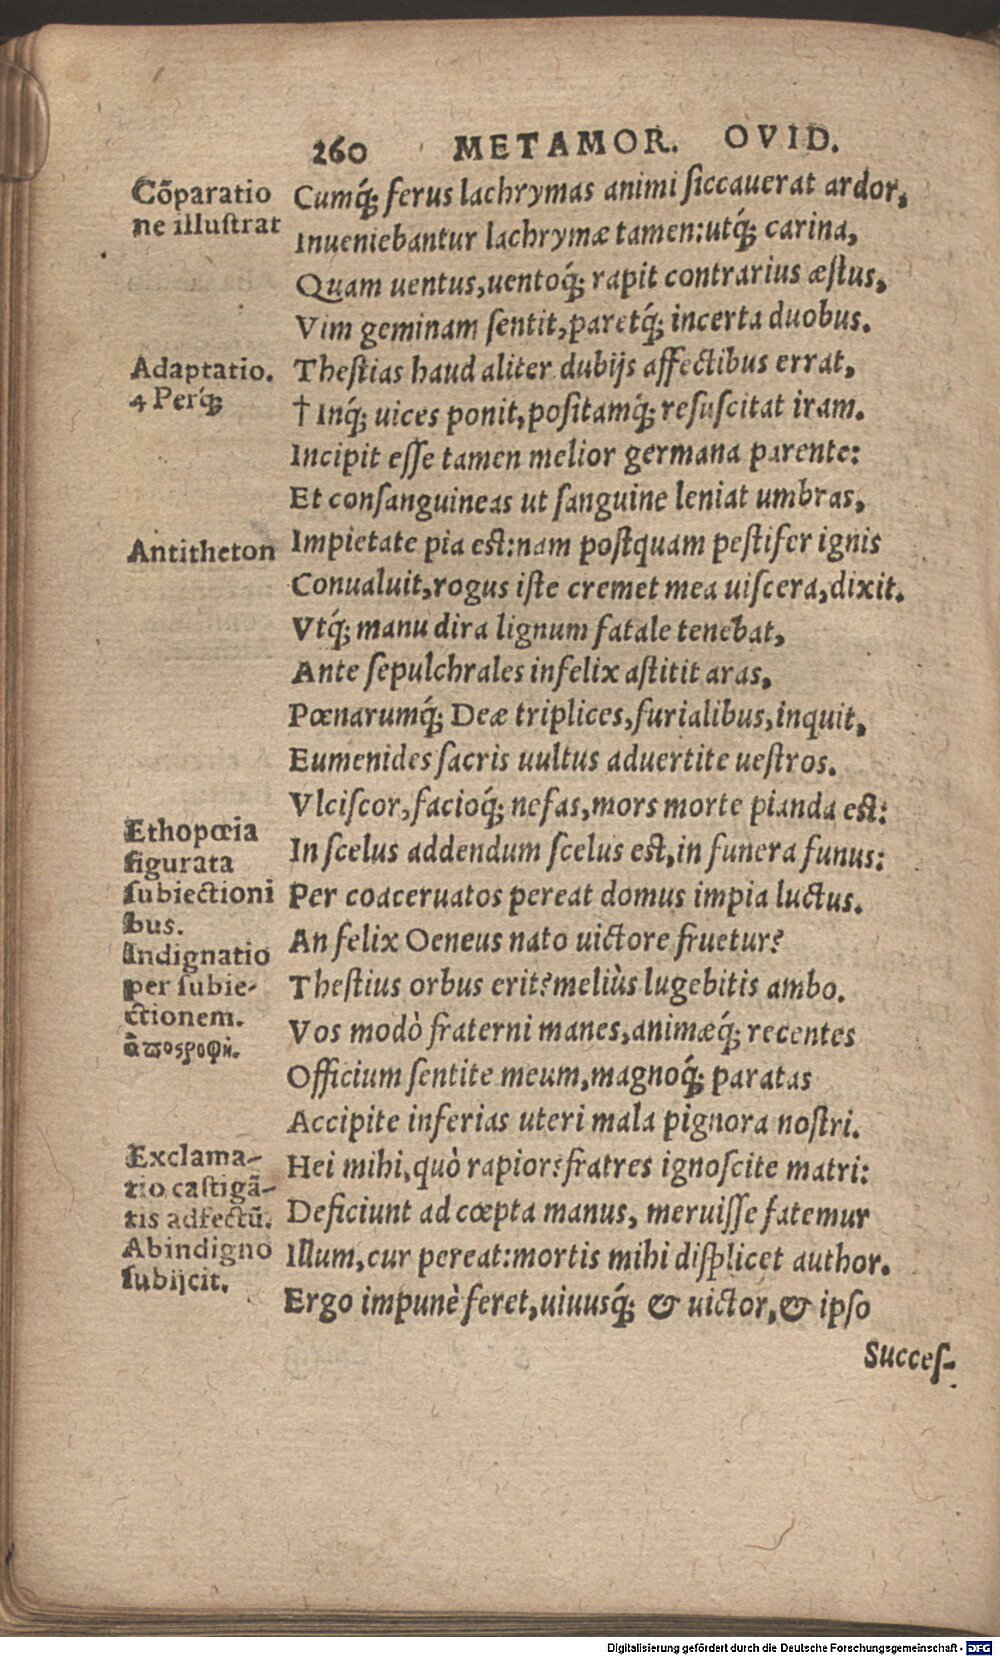 260 METAMOR. OVID.
Cõparatio
ne illustrat
Cumq́; ferus lachrymas animi siccauerat ardor,
Inueniebantur lachrymæ tamen:utq́; carina,
Quam uentus,uentoq́; rapit contrarius æstus,
Vim geminam sentit,paretq́; incerta duobus.
Adaptatio.
4 Perq́;
Thestias haud aliter dubijs affectibus errat,
† Inq́; uices ponit,positamq́; resuscitat iram.
Incipit esse tamen melior germana parente:
Et consanguineas ut sanguine leniat umbras,
Antitheton
Impietate pia est:nam postquam pestifer ignis
Conualuit,rogus iste cremet mea uiscera,dixit.
Vtq́; manu dira lignum fatale tenebat,
Ante sepulchrales infelix astitit aras,
Pœnarumq́; Deæ triplices,furialibus,inquit,
Eumenides sacris uultus aduertite uestros.
Vlciscor,facioq́; nefas,mors morte pianda est:
Ethopœia
figurata
subiectioni
bus.
In scelus addendum scelus est,in funera funus:
Per coaceruatos pereat domus impia luctus.
An felix Oeneus nato uictore fruetur?
Indignatio
per subie-
ctionem.
ἀποστροφή.
Thestius orbus erit?meliùs lugebitis ambo.
Vos modò fraterni manes,animæq́; recentes
Officium sentite meum,magnoq́; paratas
Accipite inferias uteri mala pignora nostri.
Exclama-
tio castigã-
tis adfectũ.
Abindigno
subijcit.
Hei mihi,quò rapior?fratres ignoscite matri:
Deficiunt ad cœpta manus, meruisse fatemur
Illum,cur pereat:mortis mihi displicet author.
Ergo impunè feret,uiuusq́; & uictor,& ipso
Succes-
Digitalisierung gefördert durch die Deutsche Forschungsgemeinschaft - DFG